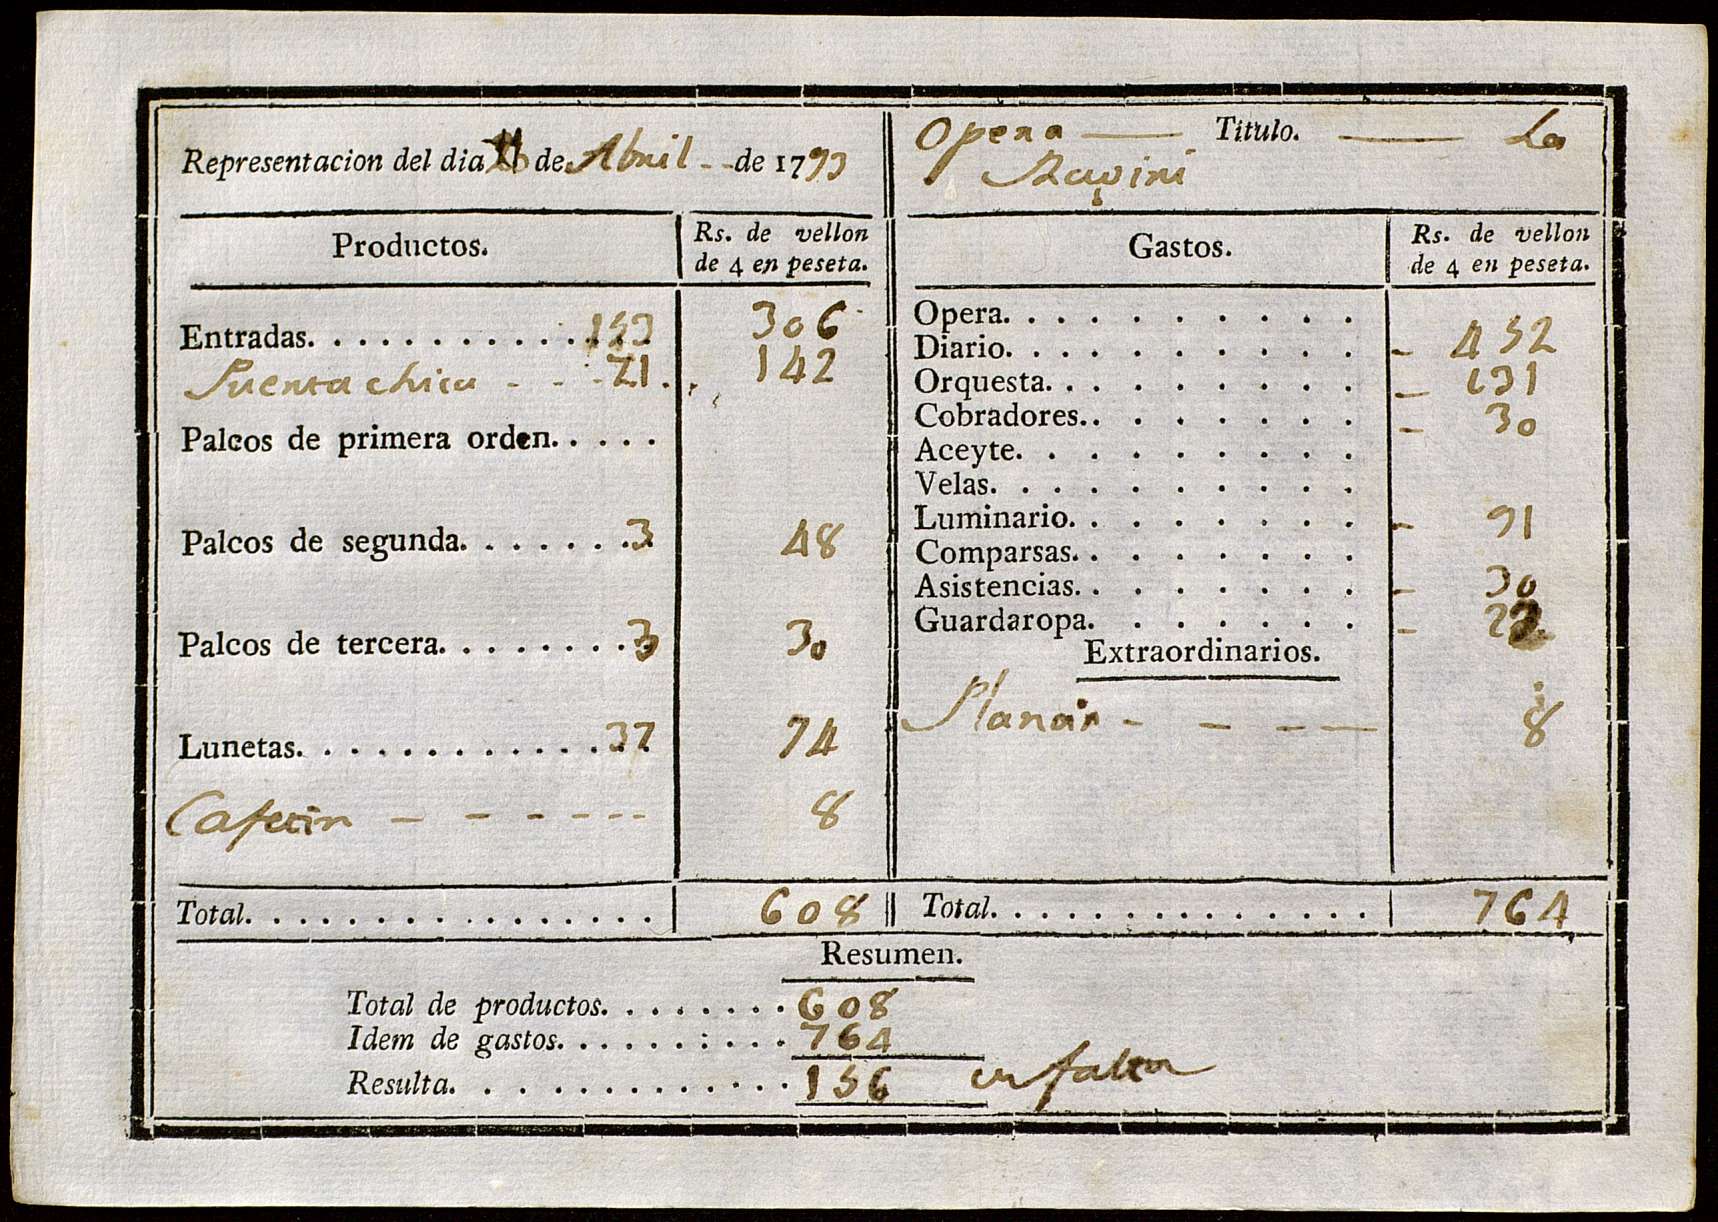 Representacion del dia de Abril - - de 1793
Opera — Titulo. — La
Productos.
Rs. de vellon
de 4 en peseta.
Gastos.
Rs. de vellon
de 4 en peseta.
Entradas. 153 306
Puerta chica - - - 71. 142
Palcos de primera orden.
Palcos de segunda. 3 48
Palcos de tercera. 3 30
Lunetas. 37 74
Cafetin - - - - - - - 8
Opera.
Diario. - 452
Orquesta. - 131
Cobradores. - 30
Aceyte.
Velas.
Luminario. - 91
Comparsas.
Asistencias. - 30
Guardaropa. - 22
Extraordinarios.
- - - - 8
Total. 608
Total. 764
Resumen.
Total de productos. 608
Idem de gastos. 764
Resulta. 156 en falta